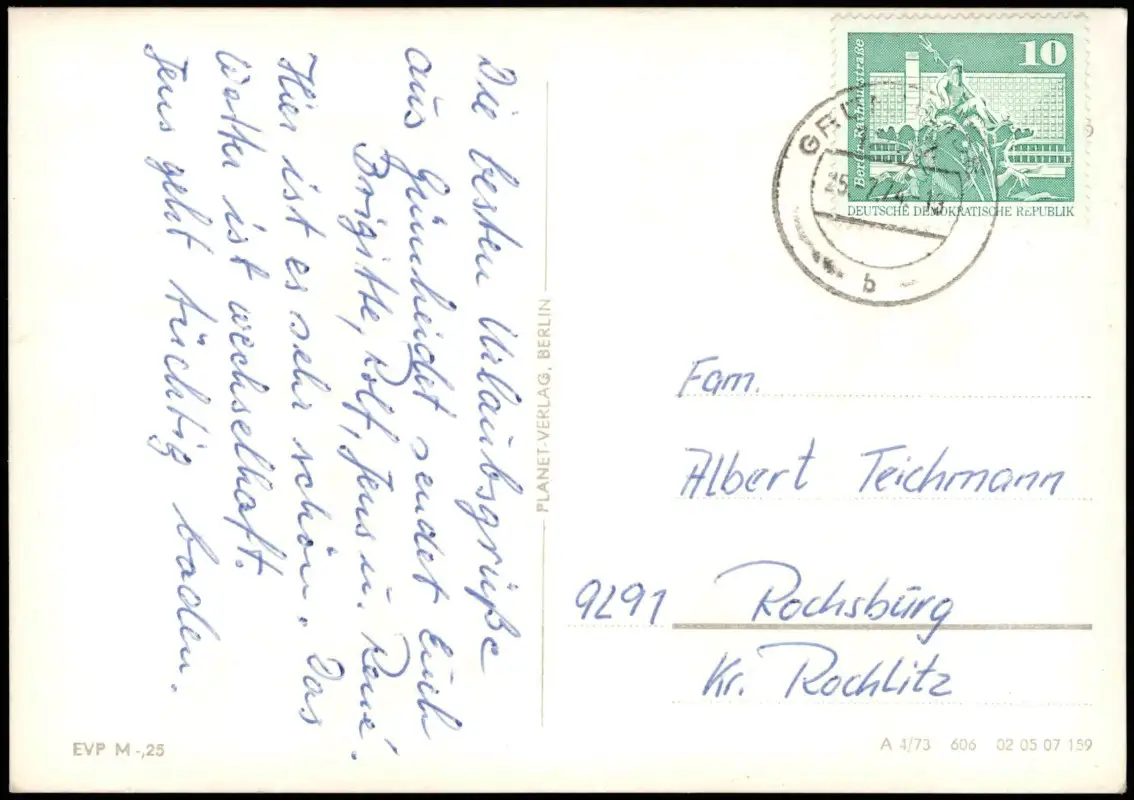 Die besten Urlaubsgrüße
aus Grünheide sendet Euch
Brigitte, Rolf, Jens u. René.
Hier ist es sehr schön. Das
Wetter ist wechselhaft.
Jens geht tüchtig baden.
PLANET-VERLAG, BERLIN
EVP M -,25
10
Berlin, Rathausstraße
DEUTSCHE DEMOKRATISCHE REPUBLIK
b
Fam.
Albert Teichmann
9291 Rochsburg
Kr. Rochlitz
A 4/73 606 02 05 07 159